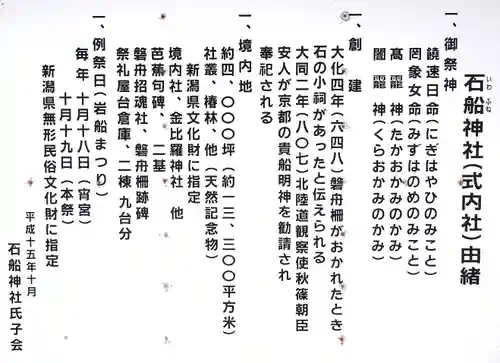 石船神社(式内社)由緒
いわ ふね
一、御祭神
饒速日命(にぎはやひのみこと)
罔象女命(みずはのめのみこと)
髙龗神(たかおかみのかみ)
闇龗神(くらおかみのかみ)
一、創 建
大化四年(六四八)磐舟柵がおかれたとき
石の小祠があったと伝えられる
大同二年(八〇七)北陸道観察使秋篠朝臣
安人が京都の貴船明神を勧請され
奉祀される
一、境内地
約四、〇〇〇坪(約一三、三〇〇平方米)
社叢、椿林、他(天然記念物)
新潟県文化財に指定
境内社、金比羅神社 他
芭蕉句碑、二基
磐舟招魂社、磐舟柵跡碑
祭礼屋台倉庫、二棟 九台分
一、例祭日(岩船まつり)
毎年 十月十八日(宵宮)
十月十九日(本祭)
新潟県無形民俗文化財に指定
平成十五年十月
石船神社氏子会